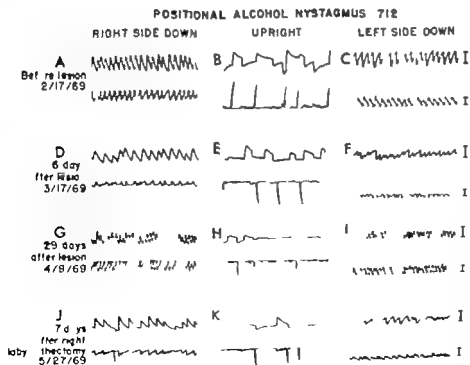 POSITIONAL ALCOHOL NYSTAGMUS 712
RIGHT SIDE DOWN UPRIGHT LEFT SIDE DOWN
A B C
Bef re lesion
2/17/69
D E F
6 day
fter lesio
3/17/69
G H I
29 days
after lesion
4/9/69
J K
7 d ys
fter right
laby thectomy
5/27/69